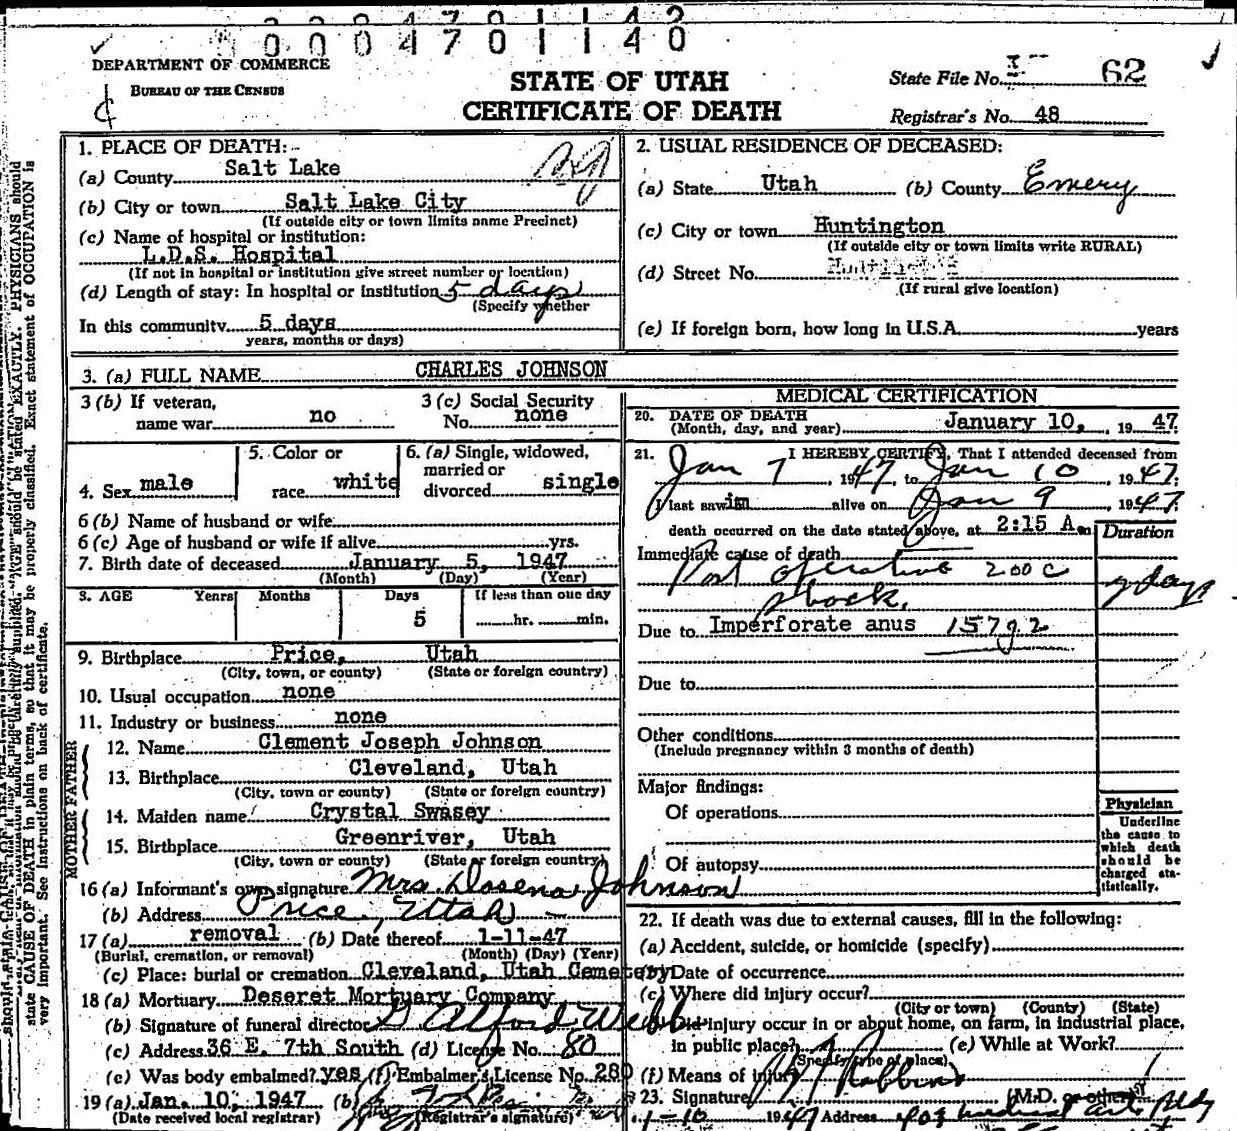 0004701140
DEPARTMENT OF COMMERCE
BUREAU OF THE CENSUS
STATE OF UTAH
CERTIFICATE OF DEATH
State File No. 62
Registrar's No. 48
1. PLACE OF DEATH:
(a) County Salt Lake
(b) City or town Salt Lake City
(If outside city or town limits name Precinct)
(c) Name of hospital or institution:
L.D.S. Hospital
(If not in hospital or institution give street number or location)
(d) Length of stay: In hospital or institution 5 days
(Specify whether
In this community 5 days
years, months or days)
2. USUAL RESIDENCE OF DECEASED:
(a) State Utah (b) County Emery
(c) City or town Huntington
(If outside city or town limits write RURAL)
(d) Street No.
(If rural give location)
(e) If foreign born, how long in U.S.A. years
3. (a) FULL NAME CHARLES JOHNSON
3 (b) If veteran, name war no
3 (c) Social Security No. none
4. Sex male
5. Color or race white
6. (a) Single, widowed, married or divorced single
6 (b) Name of husband or wife
6 (c) Age of husband or wife if alive yrs.
7. Birth date of deceased January 5, 1947
(Month) (Day) (Year)
8. AGE Years Months Days If less than one day
5 hr. min.
9. Birthplace Price, Utah
(City, town, or county) (State or foreign country)
10. Usual occupation none
11. Industry or business none
FATHER
12. Name Clement Joseph Johnson
13. Birthplace Cleveland, Utah
(City, town or county) (State or foreign country)
MOTHER
14. Maiden name Crystal Swasey
15. Birthplace Greenriver, Utah
(City, town or county) (State or foreign country)
16 (a) Informant's own signature Mrs. Dosena Johnson
(b) Address Price, Utah
17 (a) removal (b) Date thereof 1-11-47
(Burial, cremation, or removal) (Month) (Day) (Year)
(c) Place: burial or cremation Cleveland, Utah Cemetery
18 (a) Mortuary Deseret Mortuary Company
(b) Signature of funeral director G Alford Webb
(c) Address 36 E. 7th South (d) License No. 80
(e) Was body embalmed? yes (f) Embalmer's License No. 280
19 (a) Jan. 10, 1947 (b)
(Date received local registrar) (Registrar's signature)
MEDICAL CERTIFICATION
20. DATE OF DEATH
(Month, day, and year) January 10, 1947
21. I HEREBY CERTIFY, That I attended deceased from
Jan 7 1947, to Jan 10 1947;
I last saw im alive on Jan 9, 1947
death occurred on the date stated above, at 2:15 A.m
Duration
Immediate cause of death
Post operative 200c
shock. days
Due to Imperforate anus 157g.2
Due to
Other conditions
(Include pregnancy within 3 months of death)
Major findings:
Of operations
Of autopsy
Physician
Underline
the cause to
which death
should be
charged sta-
tistically.
22. If death was due to external causes, fill in the following:
(a) Accident, suicide, or homicide (specify)
(b) Date of occurrence
(c) Where did injury occur?
(City or town) (County) (State)
Did injury occur in or about home, on farm, in industrial place,
in public place? (e) While at Work?
(Specify type of place)
(f) Means of injury
23. Signature Robbins (M.D. or other)
1-10 1947 Address 403 Medical Arts Bldg
state CAUSE OF DEATH in plain terms, so that it may be properly classified. Exact statement of OCCUPATION is
very important. See instructions on back of certificate.